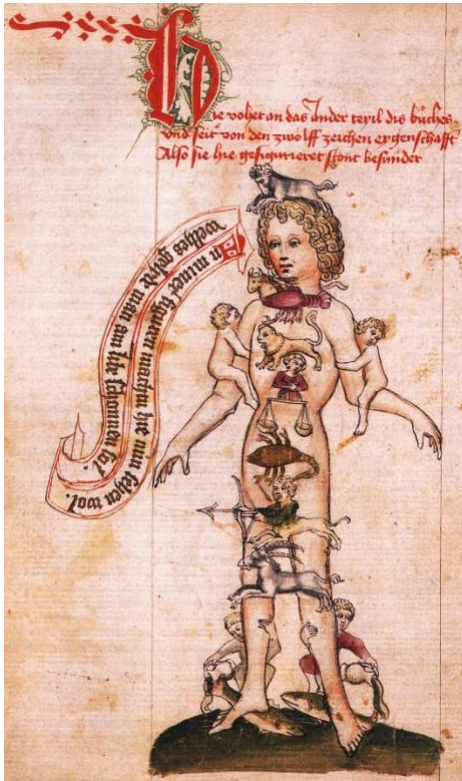 Hie vohet an das Ander teyil dis bůches
Vnd seit von den zwölff zeichen eygenschafft
Also sie hie gefigurieret stont besunder
In miner figuren machtu hie nun sehen wol.
Welhes gelyde man am schonnen sol.